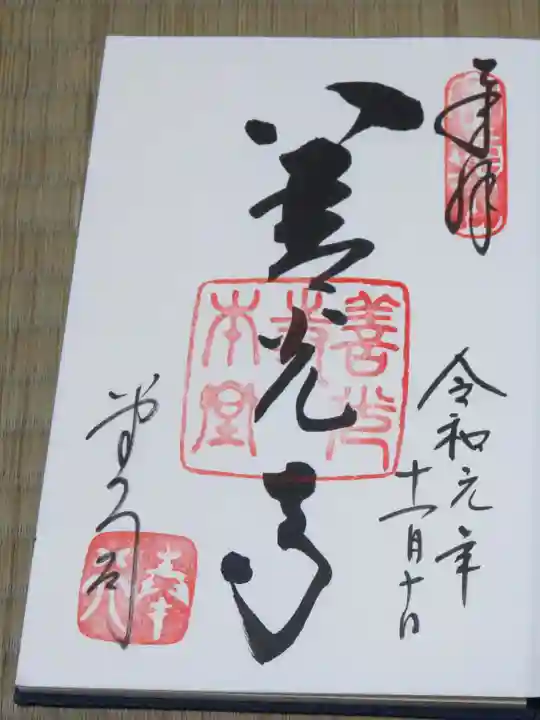 奉拝
令和元年
十一月十日
善光寺
善光寺本堂
堂司